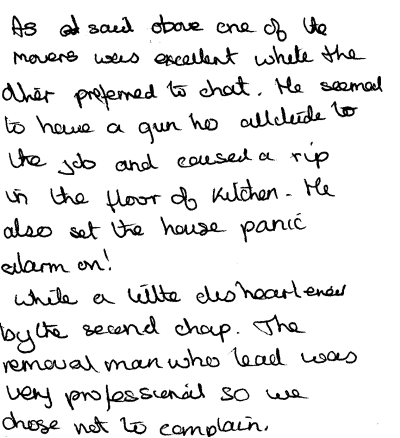 As I said above one of the
movers was excellent while the
other preferred to chat. He seemed
to have a gun ho attitude to
the job and caused a rip
in the floor of kitchen. He
also set the house panic
alarm on!
While a little disheartened
by the second chap. The
removal man who lead was
very professional so we
chose not to complain.